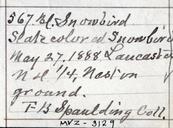 567. Snowbird
Slate colored Snowbird
May 27, 1888 Lancaster
N.H. 1/4, Nest on
ground.
F. B. Spaulding Coll.
MVZ - 3129